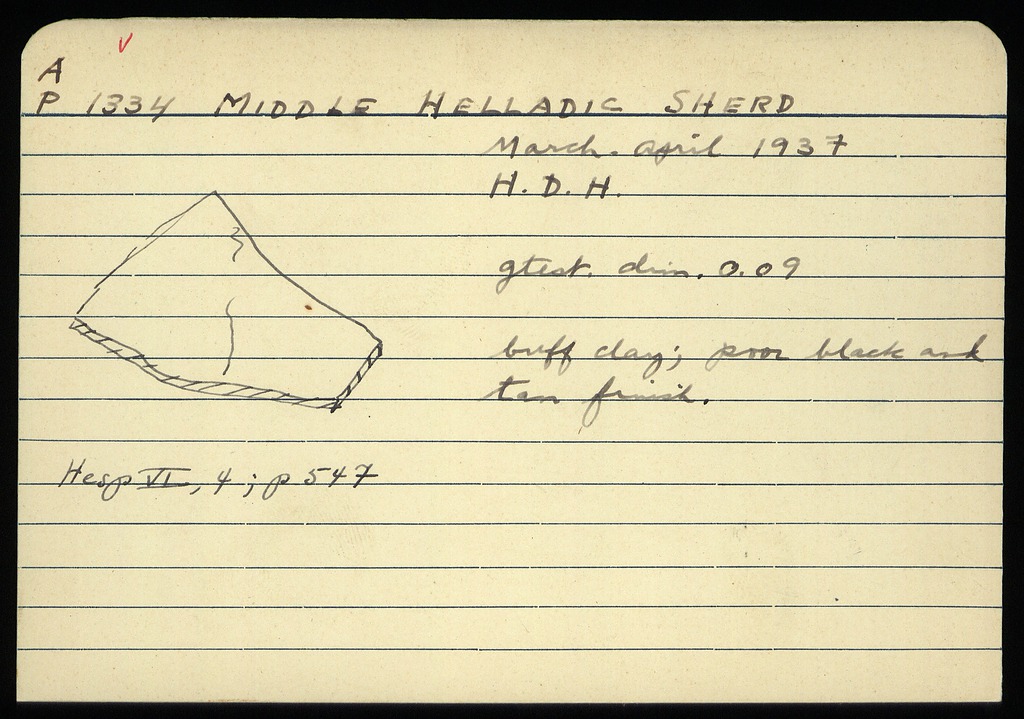 A
P 1334 MIDDLE HELLADIC SHERD
March. April 1937
H. D. H.
gtest. dim. 0.09
buff clay; poor black and
tan finish.
Hesp VI, 4; p 547